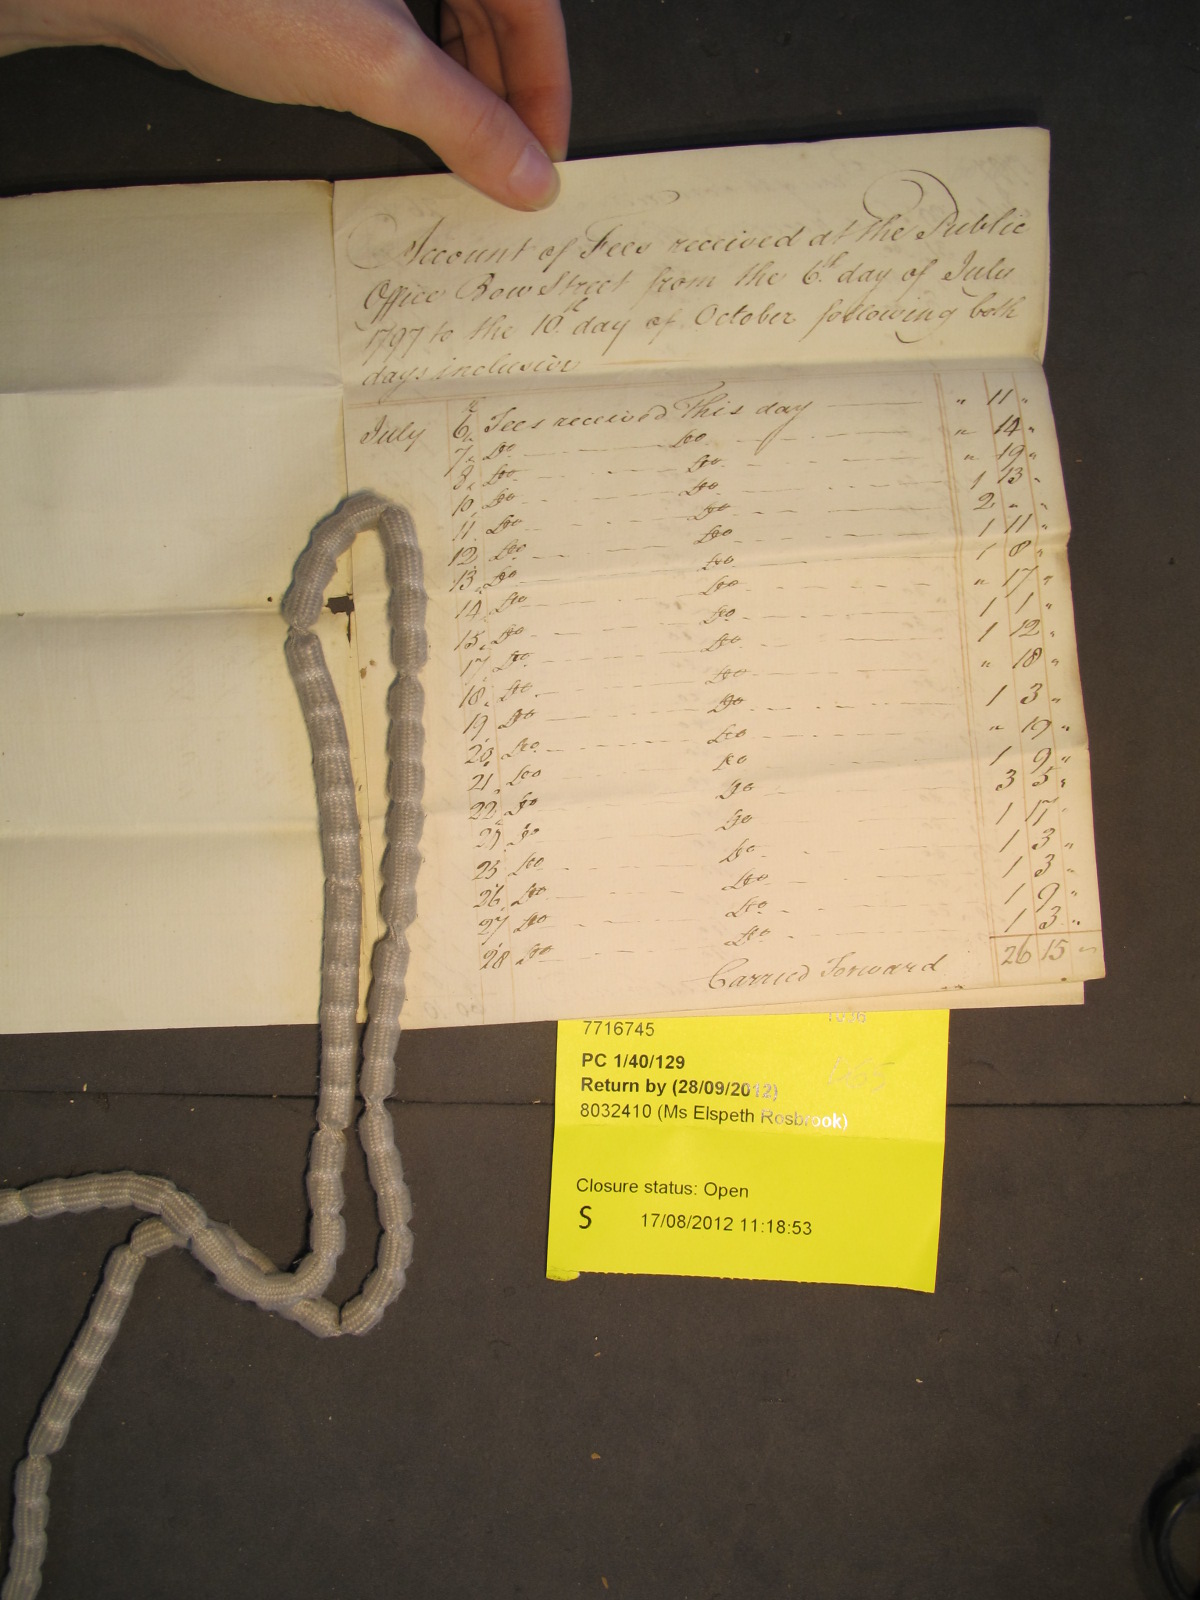 Account of Fees received at the Public
Office Bow Street from the 6th day of July
1797 to the 10th day of October following both
days inclusive
July 6. Fees received This day " 11 "
7. Do Do " 14 "
8. Do Do " 19 "
10. Do Do 1 13 "
11. Do Do 2 " "
12. Do Do 1 11 "
13. Do Do 1 8 "
14. Do Do " 17 "
15. Do Do 1 1 "
17. Do Do 1 12 "
18. Do Do " 18 "
19. Do Do 1 3 "
20. Do Do " 19 "
21. Do Do 1 9 "
22. Do Do 3 5 "
24. Do Do 1 17 "
25. Do Do 1 3 "
26. Do Do 1 3 "
27. Do Do 1 9 "
28. Do Do 1 3 "
Carried Forward 26 15 "
7716745
PC 1/40/129
Return by (28/09/2012)
8032410 (Ms Elspeth Rosbrook)
Closure status: Open
S 17/08/2012 11:18:53